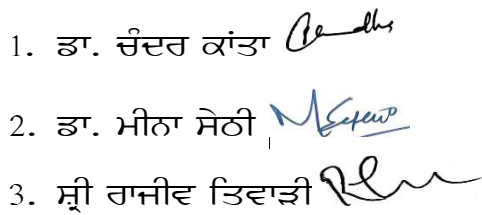 1. ਡਾ. ਚੰਦਰ ਕਾਂਤਾ
2. ਡਾ. ਮੀਨਾ ਸੇਠੀ
3. ਸ਼੍ਰੀ ਰਾਜੀਵ ਤਿਵਾੜੀ